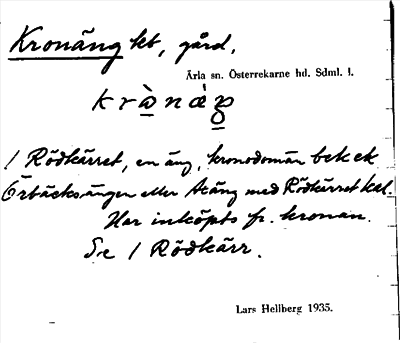 Kronäng kt, gård,
Ärla sn. Österrekarne hd. Sdml. l.
krònä̀ŋ
1 Rödkärret, en äng, kronodomän
Örbäcksängen eller Atäng med Rödkärret kal.
Har inköpts fr. kronan.
Se 1 Rödkärr.
Lars Hellberg 1935.